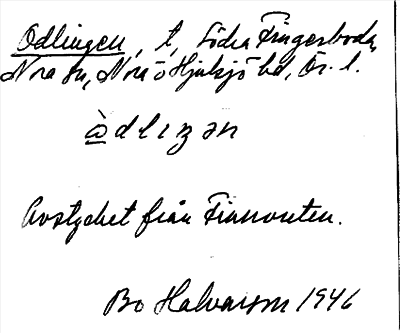 Odlingen, t, Södra Fingerboda,
Nora sn, Nora o Hjulsjö bd, Ör. l.
àdlɩŋən
Avstycket från Finnvreten.
Bo Halvarson 1946